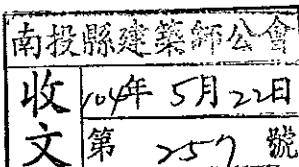 南投縣建築師公會
收文
104年 5月22日
第 257 號